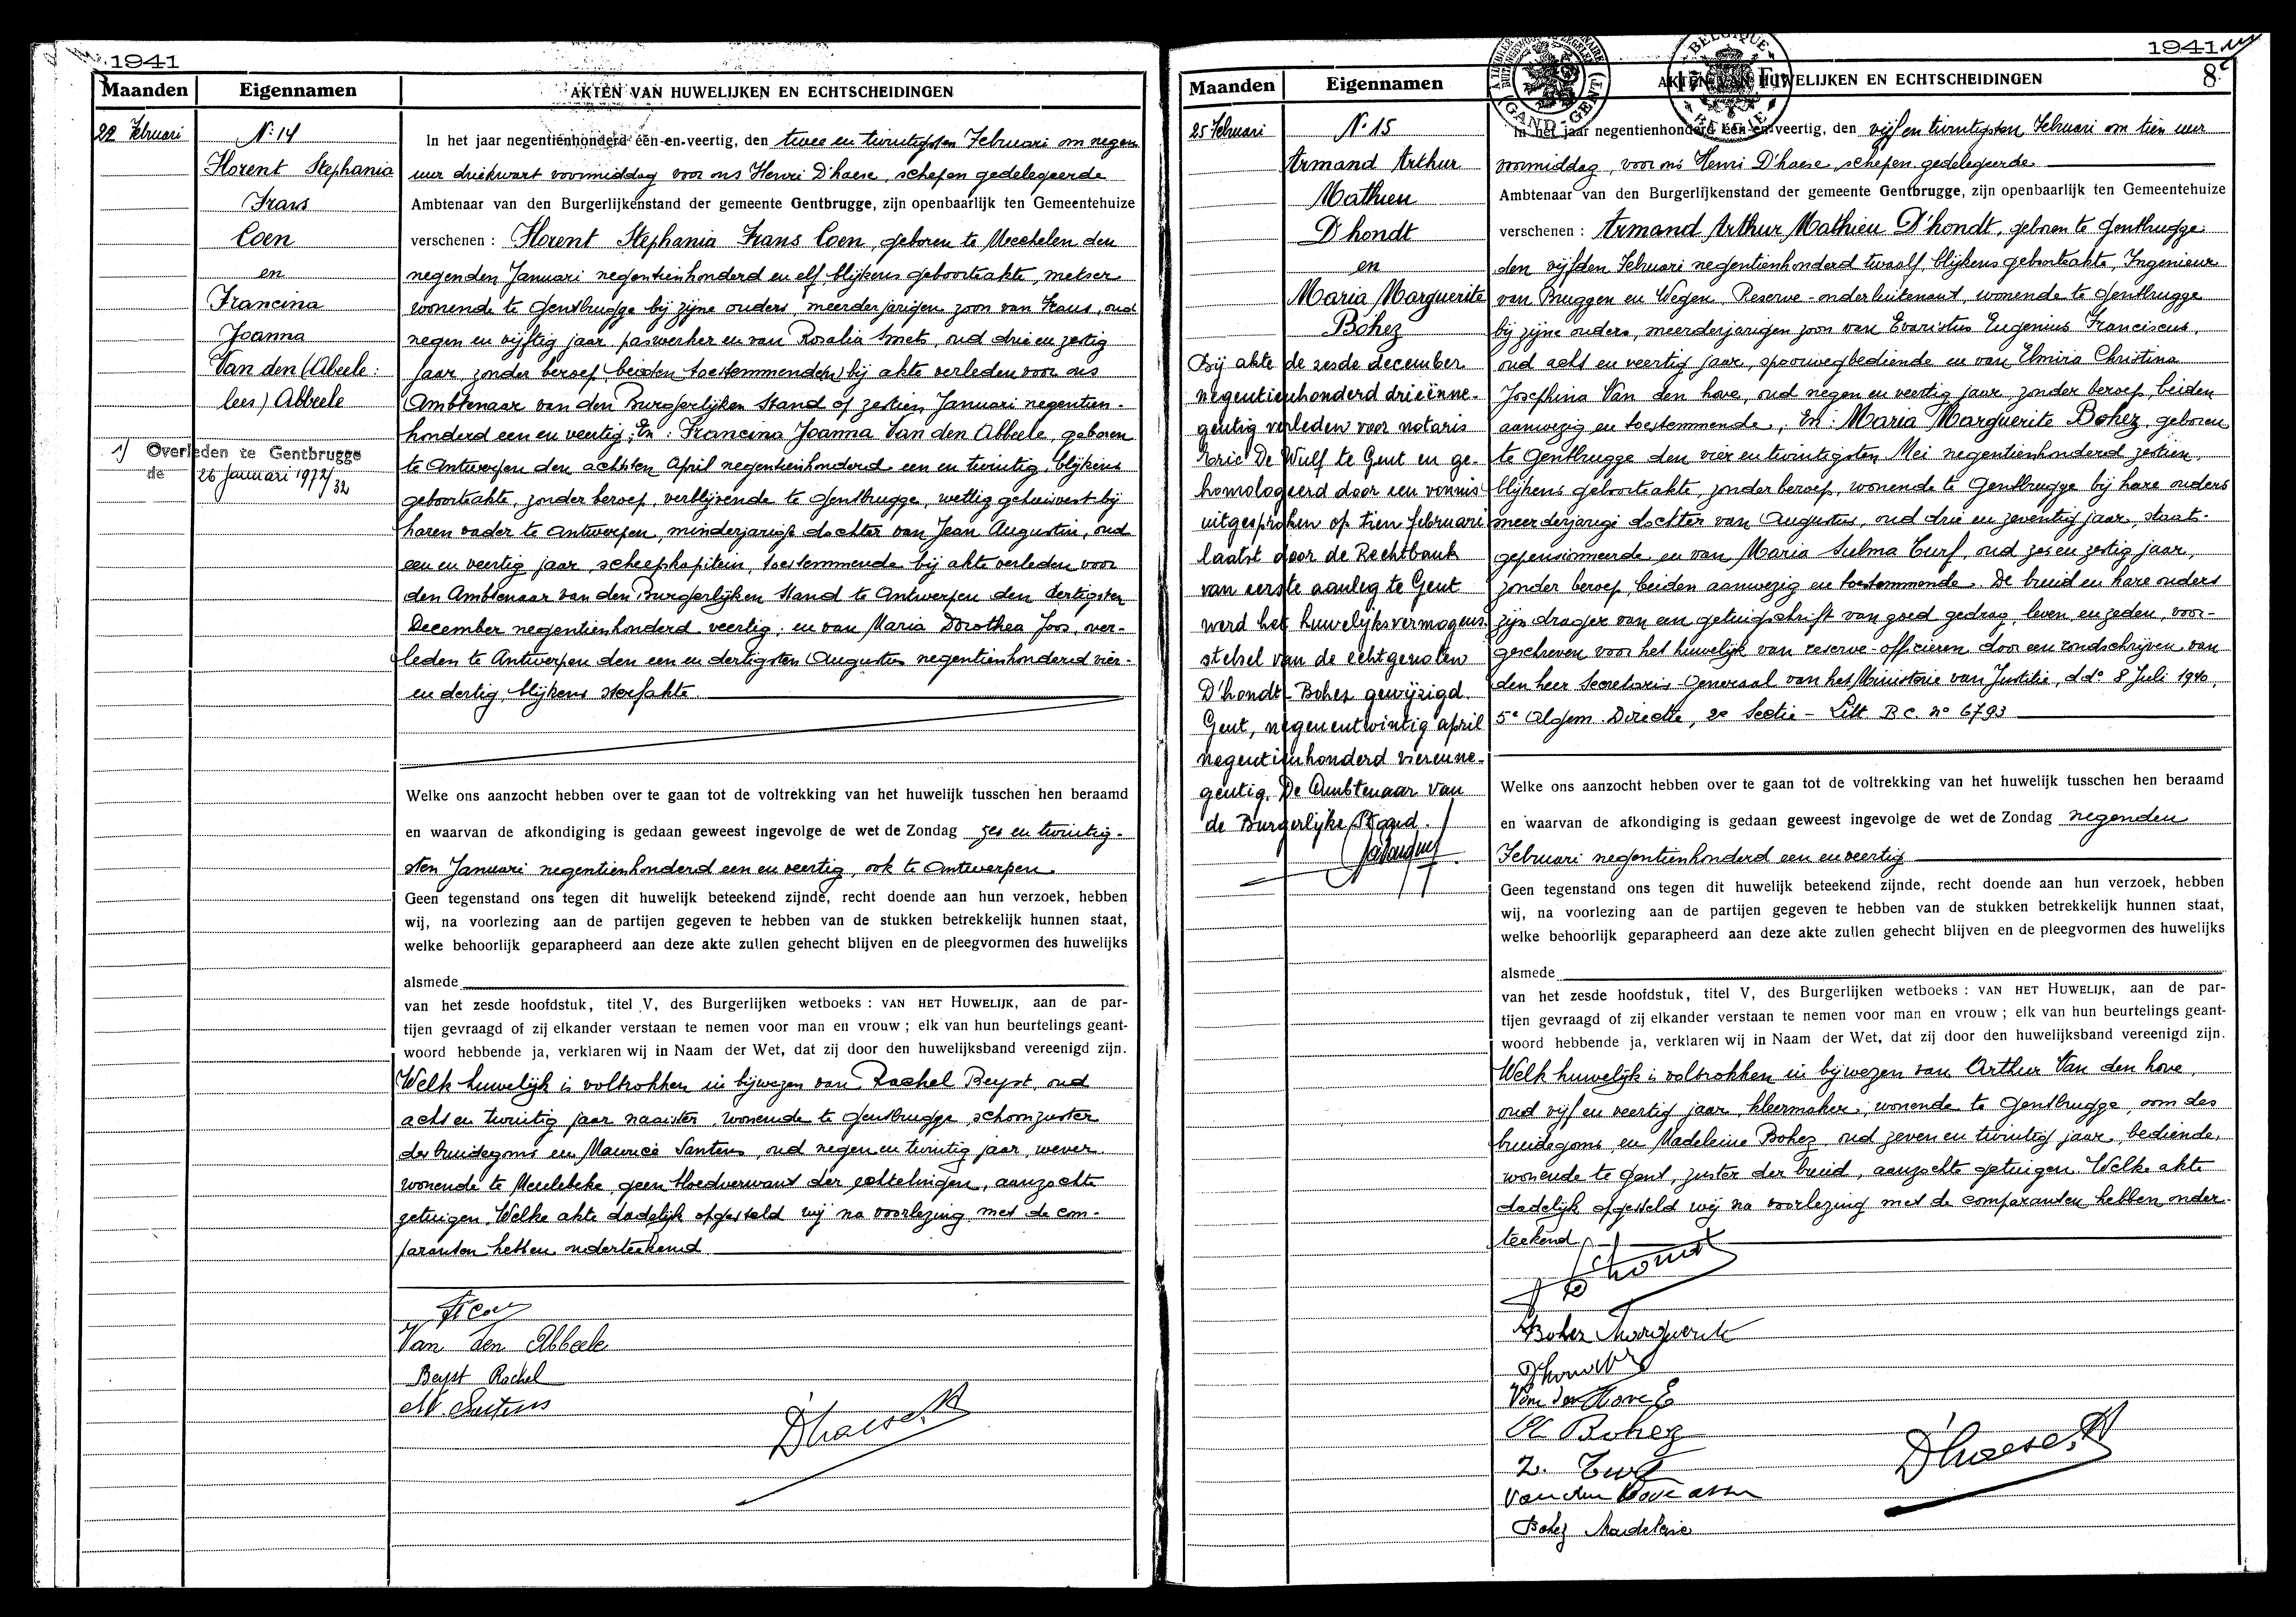 1941
Maanden
Eigennamen
AKTEN VAN HUWELIJKEN EN ECHTSCHEIDINGEN
22 Februari
N: 14
Florent Stephania
Frans
Coen
en
Francina
Joanna
Van den (Abeele:
lees) Abbeele
1) Overleden te Gentbrugge
de 26 Januari 1972/32
In het jaar negentienhonderd één-en-veertig, den twee en twintigsten Februari om negen
uur driekwart voormiddag voor ons Henri D'haese, schepen gedelegeerde
Ambtenaar van den Burgerlijkenstand der gemeente Gentbrugge, zijn openbaarlijk ten Gemeentehuize
verschenen : Florent Stephania Frans Coen, geboren te Mechelen den
negenden Januari negentienhonderd en elf, blijkens geboorteakte, metser
wonende te Gentbrugge bij zijne ouders, meerderjarigen zoon van Frans, oud
negen en vijftig jaar paswerker en van Rosalia Smets, oud drie en zestig
jaar, zonder beroep, beiden toestemmende(n) bij akte verleden voor ons
Ambtenaar van den Burgerlijken Stand op zestien Januari negentien-
honderd een en veertig; En : Francina Joanna Van den Abbeele, geboren
te Antwerpen den achtsten April negentienhonderd een en twintig, blijkens
geboorteakte, zonder beroep, verblijvende te Gentbrugge, wettig gehuisvest bij
haren vader te Antwerpen, minderjarige dochter van Jean Augustin, oud
een en veertig jaar, scheepkapitein, toestemmende bij akte verleden voor
den Ambtenaar van den Burgerlijken Stand te Antwerpen den dertigsten
December negentienhonderd veertig; en van Maria Dorothea Joos, over-
leden te Antwerpen den een en dertigsten Augustus negentienhonderd vier-
en dertig, blijkens sterfakte.
Welke ons aanzocht hebben over te gaan tot de voltrekking van het huwelijk tusschen hen beraamd
en waarvan de afkondiging is gedaan geweest ingevolge de wet de Zondag zes en twintig-
sten Januari negentienhonderd een en veertig, ook te Antwerpen.
Geen tegenstand ons tegen dit huwelijk beteekend zijnde, recht doende aan hun verzoek, hebben
wij, na voorlezing aan de partijen gegeven te hebben van de stukken betrekkelijk hunnen staat,
welke behoorlijk geparapheerd aan deze akte zullen gehecht blijven en de pleegvormen des huwelijks
alsmede
van het zesde hoofdstuk, titel V, des Burgerlijken wetboeks : VAN HET HUWELIJK, aan de par-
tijen gevraagd of zij elkander verstaan te nemen voor man en vrouw ; elk van hun beurtelings geant-
woord hebbende ja, verklaren wij in Naam der Wet, dat zij door den huwelijksband vereenigd zijn.
Welk huwelijk is voltrokken in bijwezen van Rachel Beyst, oud
acht en twintig jaar naaister, wonende te Gentbrugge, schoonzuster
des bruidegoms en Maurice Santens, oud negen en twintig jaar, wever
wonende te Meulebeke, geen bloedverwant der echtelingen, aanzochte
getuigen. Welke akte dadelijk opgesteld wij na voorlezing met de com-
paranten hebben onderteekend
Fl Coen
Van den Abbeele
Beyst Rachel
M. Santens
D'haese H
1941
8
Maanden
Eigennamen
AKTEN VAN HUWELIJKEN EN ECHTSCHEIDINGEN
BELGIQUE
BELGIE
GAND-GENT
25 Februari
N. 15
Armand Arthur
Mathieu
D'hondt
en
Maria Marguerite
Bohez
Bij akte de zesde december
negentienhonderd drieënne-
gentig verleden voor notaris
De Wulf te Gent en ge-
homologeerd door een vonnis
uitgesproken op tien februari
laatst door de Rechtbank
van eerste aanleg te Gent
werd het huwelijksvermogens-
stelsel van de echtgenoten
D'hondt-Bohez gewijzigd.
Gent, negenentwintig april
negentienhonderd vierenne-
gentig. De Ambtenaar van
de Burgerlijke Stand.
In het jaar negentienhonderd één-en-veertig, den vijf en twintigsten Februari om tien uur
voormiddag, voor ons Henri D'haese, schepen gedelegeerde
Ambtenaar van den Burgerlijkenstand der gemeente Gentbrugge, zijn openbaarlijk ten Gemeentehuize
verschenen : Armand Arthur Mathieu D'hondt, geboren te Gentbrugge
den vijfden Februari negentienhonderd twaalf, blijkens geboorteakte, Ingenieur
van Bruggen en Wegen, Reserve-onderluitenant, wonende te Gentbrugge
bij zijne ouders, meerderjarigen zoon van Evaristus Eugenius Franciscus,
oud acht en veertig jaar, spoorwegbediende en van Elmira Christina
Josephina Van den hove, oud negen en veertig jaar, zonder beroep, beiden
aanwezig en toestemmende, En : Maria Marguerite Bohez, geboren
te Gentbrugge den vier en twintigsten Mei negentienhonderd zestien,
blijkens geboorteakte, zonder beroep, wonende te Gentbrugge bij hare ouders
meerderjarige dochter van Augustus, oud drie en zeventig jaar, staat-
gepensionneerde en van Maria Sulma Turf, oud zes en zestig jaar,
zonder beroep, beiden aanwezig en toestemmende. De bruid en hare ouders
zijn drager van een getuigschrift van goed gedrag, leven, en zeden, voor-
geschreven voor het huwelijk van reserve-officieren door een rondschrijven van
den heer Secretaris-Generaal van het Ministerie van Justitie, dd° 8 Juli 1940,
5e Algem. Directie, 2e Sectie - Litt. B.C. n° 6793
Welke ons aanzocht hebben over te gaan tot de voltrekking van het huwelijk tusschen hen beraamd
en waarvan de afkondiging is gedaan geweest ingevolge de wet de Zondag negenden
Februari negentienhonderd een en veertig
Geen tegenstand ons tegen dit huwelijk beteekend zijnde, recht doende aan hun verzoek, hebben
wij, na voorlezing aan de partijen gegeven te hebben van de stukken betrekkelijk hunnen staat,
welke behoorlijk geparapheerd aan deze akte zullen gehecht blijven en de pleegvormen des huwelijks
alsmede
van het zesde hoofdstuk, titel V, des Burgerlijken wetboeks : VAN HET HUWELIJK, aan de par-
tijen gevraagd of zij elkander verstaan te nemen voor man en vrouw ; elk van hun beurtelings geant-
woord hebbende ja, verklaren wij in Naam der Wet, dat zij door den huwelijksband vereenigd zijn.
Welk huwelijk is voltrokken in bijwezen van Arthur Van den hove,
oud vijf en veertig jaar, kleermaker, wonende te Gentbrugge, oom des
bruidegoms en Madeleine Bohez, oud zeven en twintig jaar, bediende,
wonende te Gent, zuster der bruid, aanzochte getuigen. Welke akte
dadelijk opgesteld wij na voorlezing met de comparanten hebben onder-
teekend
D'hondt
Bohez Marguerite
D'hondt
Van den Hove E
Bohez
Z. Turf
Van den Hove
Bohez Madeleine
D'haese H